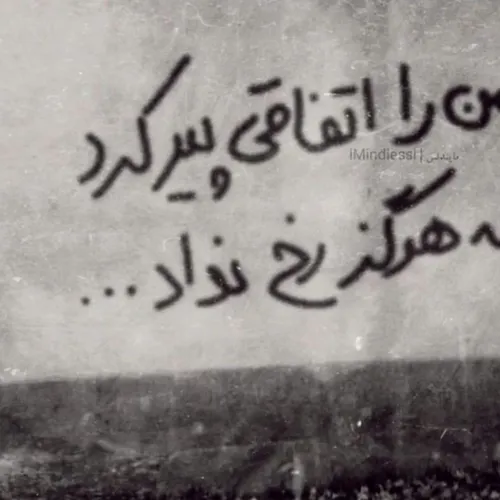 من را اتفاقی پیر کرد
که هرگز رخ نداد...
iMindless| | مایندلس